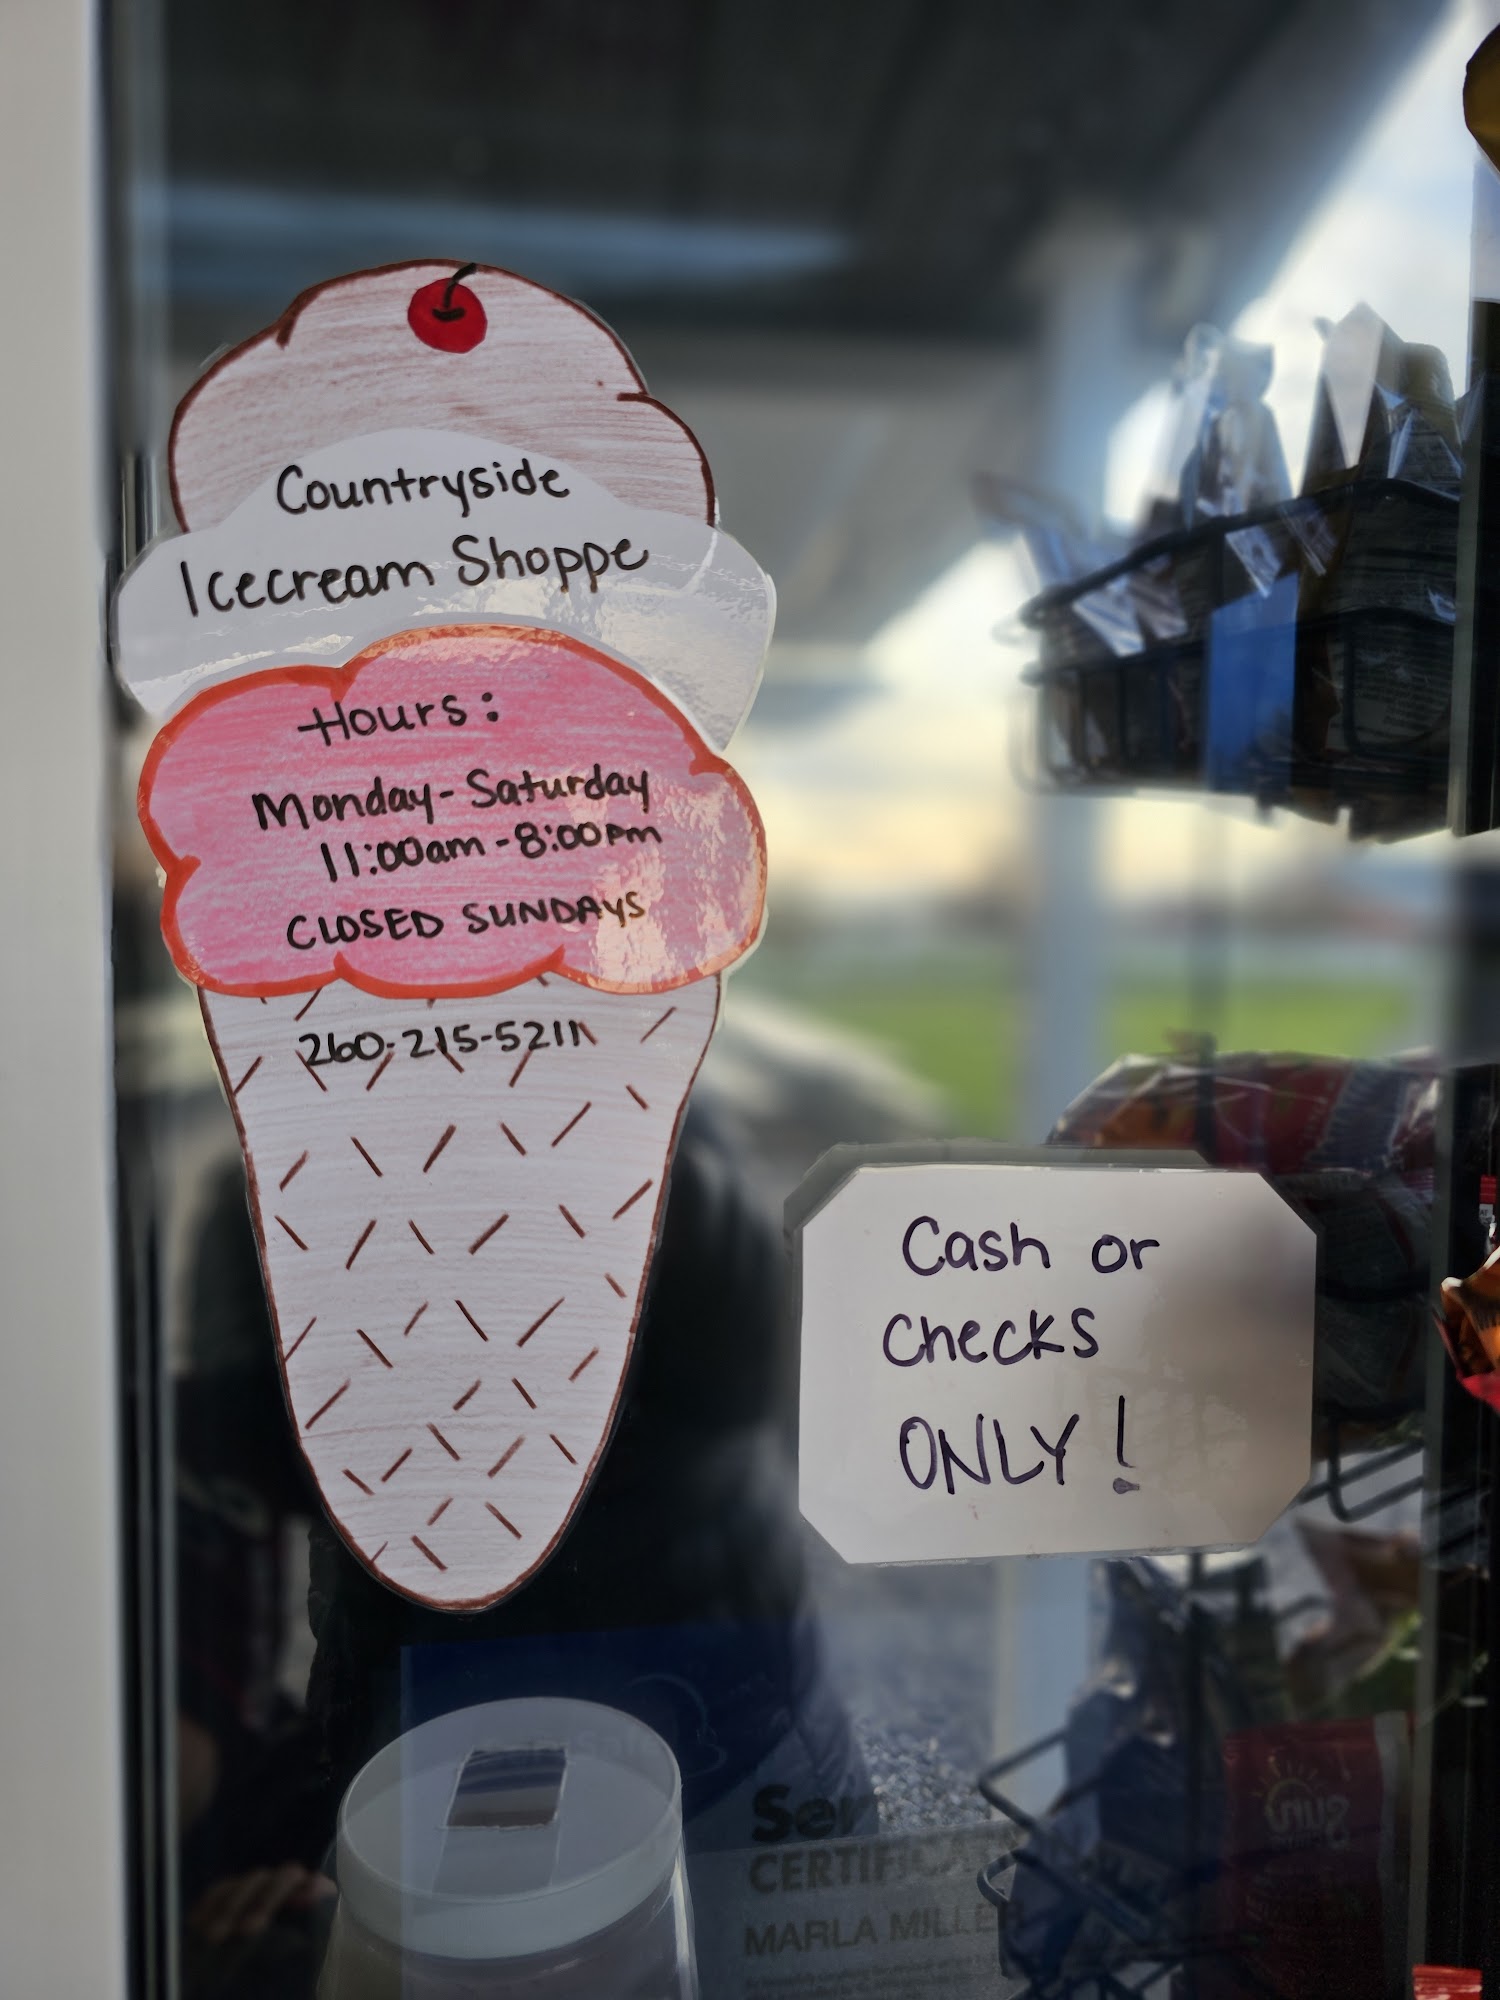 Countryside
Icecream Shoppe
Hours:
Monday-Saturday
11:00am-8:00pm
CLOSED SUNDAYS
260-215-5211
Cash or
Checks
ONLY!
CERTIFICATION
MARLA MILLER
Sun